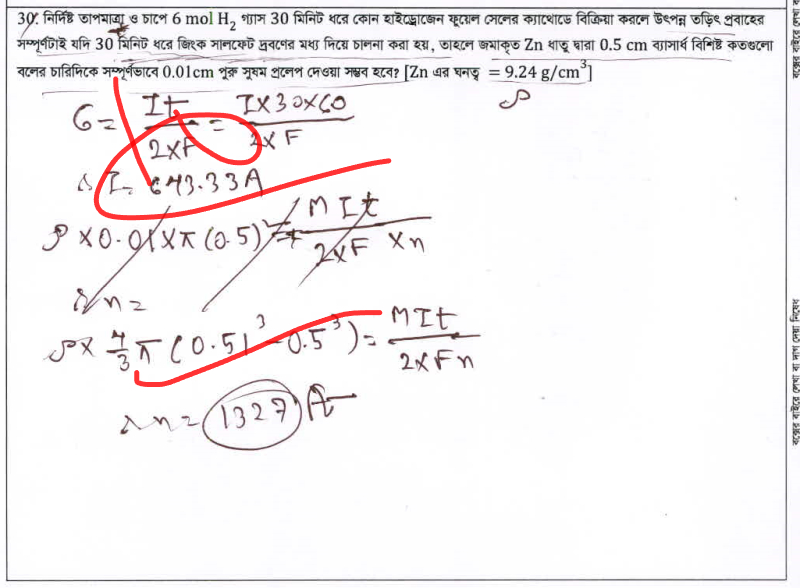 30. নির্দিষ্ট তাপমাত্রা ও চাপে 6 mol H₂ গ্যাস 30 মিনিট ধরে কোন হাইড্রোজেন ফুয়েল সেলের ক্যাথোডে বিক্রিয়া করলে উৎপন্ন তড়িৎ প্রবাহের
সম্পূর্ণটাই যদি 30 মিনিট ধরে জিংক সালফেট দ্রবণের মধ্য দিয়ে চালনা করা হয়, তাহলে জমাকৃত Zn ধাতু দ্বারা 0.5 cm ব্যাসার্ধ বিশিষ্ট কতগুলো
বলের চারিদিকে সম্পূর্ণভাবে 0.01cm পুরু সুষম প্রলেপ দেওয়া সম্ভব হবে? [Zn এর ঘনত্ব = 9.24 g/cm³]
ρ
6 = It/2×F = I×30×60/2×F
I = 643.33A
ρ × 0.01 × π (0.5)² = MIt/2×F × n
n =
ρ × 4/3 π (0.51³ - 0.5³) = MIt/2×Fn
n = 1327
বক্সের বাইরে লেখা বা দাগ দেয়া নিষেধ